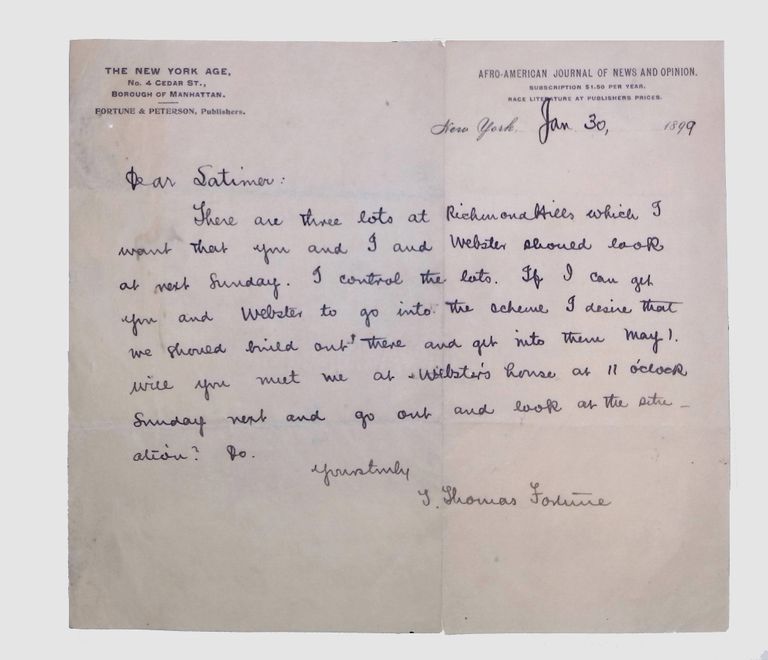 THE NEW YORK AGE,
No. 4 CEDAR ST.,
BOROUGH OF MANHATTAN.
FORTUNE & PETERSON, Publishers.
AFRO-AMERICAN JOURNAL OF NEWS AND OPINION.
SUBSCRIPTION $1.50 PER YEAR.
RACE LITERATURE AT PUBLISHERS PRICES.
New York, Jan. 30, 1899
Dear Latimer:
There are three lots at Richmond Hills which I
want that you and I and Webster should look
at next Sunday. I control the lots. If I can get
you and Webster to go into the scheme I desire that
we should build out there and get into them May 1.
Will you meet me at Webster's house at 11 o'clock
Sunday next and go out and look at the situ-
ation? Do.
Yours truly
T. Thomas Fortune